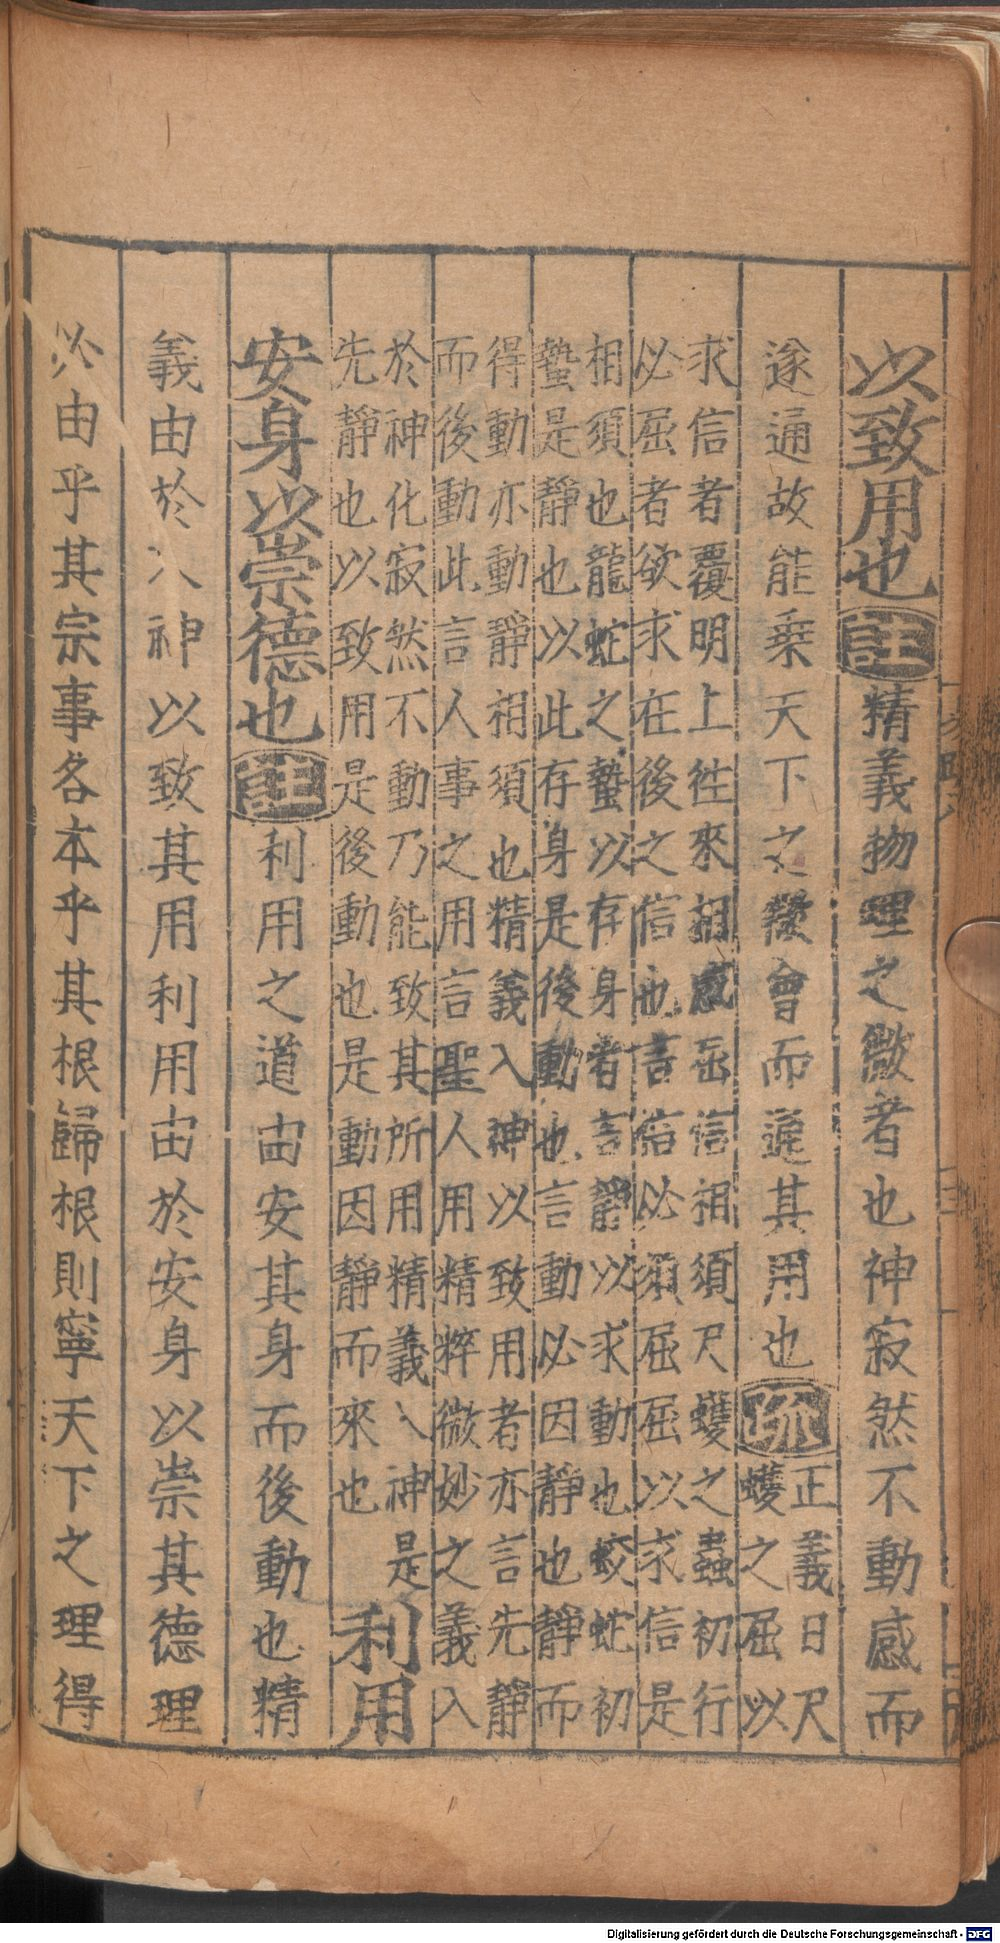 以致用也註精義物理之微者也神寂然不動感而
遂通故能乗天下之㣲會而通其用也疏正義曰尺
蠖之屈以
求信者覆明上徃來相感屈信相須尺蠖之蟲初行
必屈者欲求在後之信也言信必須屈屈以求信是
相須也龍蛇之蟄以存身者言靜以求動也蛟蛇初
蟄是靜也以此存身是後動也言動必因靜也靜而
得動亦動靜相須也精義入神以致用者亦言先靜
而後動此言人事之用言聖人用精粹微妙之義入
於神化寂然不動乃能致其所用精義入神是
先靜也以致用是後動也是動因靜而來也
利用
安身以崇德也註利用之道由安其身而後動也精
義由於入神以致其用利用由於安身以崇其德理
必由乎其宗事各本乎其根歸根則寧天下之理得
Digitalisierung gefördert durch die Deutsche Forschungsgemeinschaft - DFG